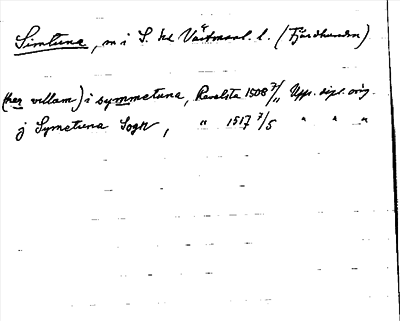 Simtuna, m i S. hd Västmanl. l. (Fjärdhundra)
(her villam) i symmetuna, Revelsta 1508 7/11 Upps. dipl. orig.
j Symetuna Sogn, " 1517 7/5 " " "